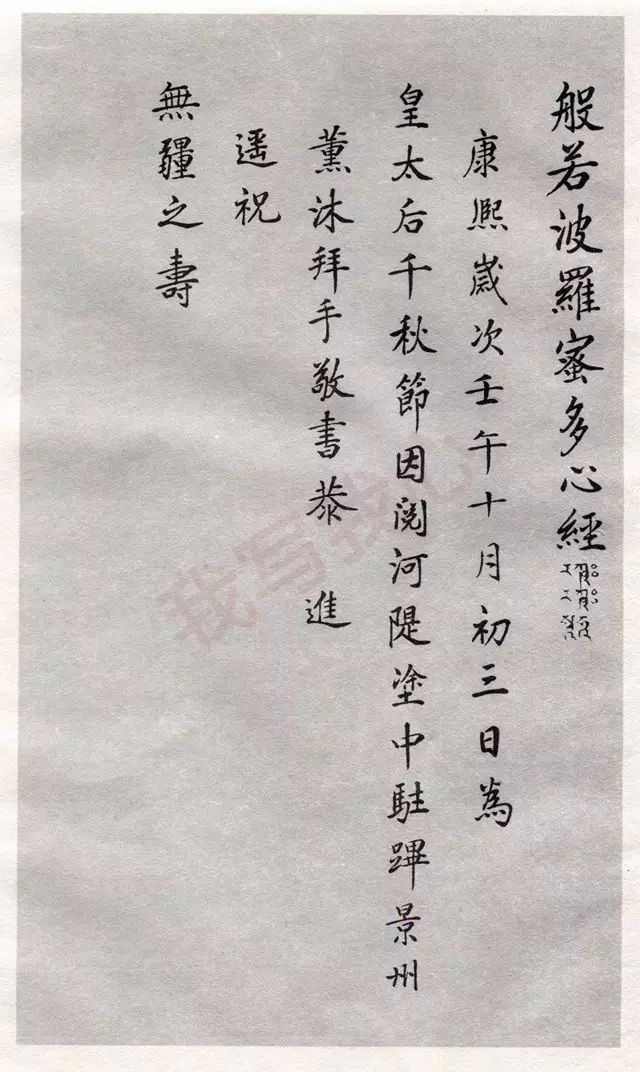 般若波羅蜜多心經
康熙嵗次壬午十月初三日為
皇太后千秋節因閱河隄塗中駐蹕景州
薰沐拜手敬書恭進
遥祝
無疆之壽
我写我心